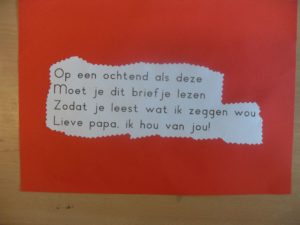 Op een ochtend als deze
Moet je dit briefje lezen
Zodat je leest wat ik zeggen wou
Lieve papa, ik hou van jou!